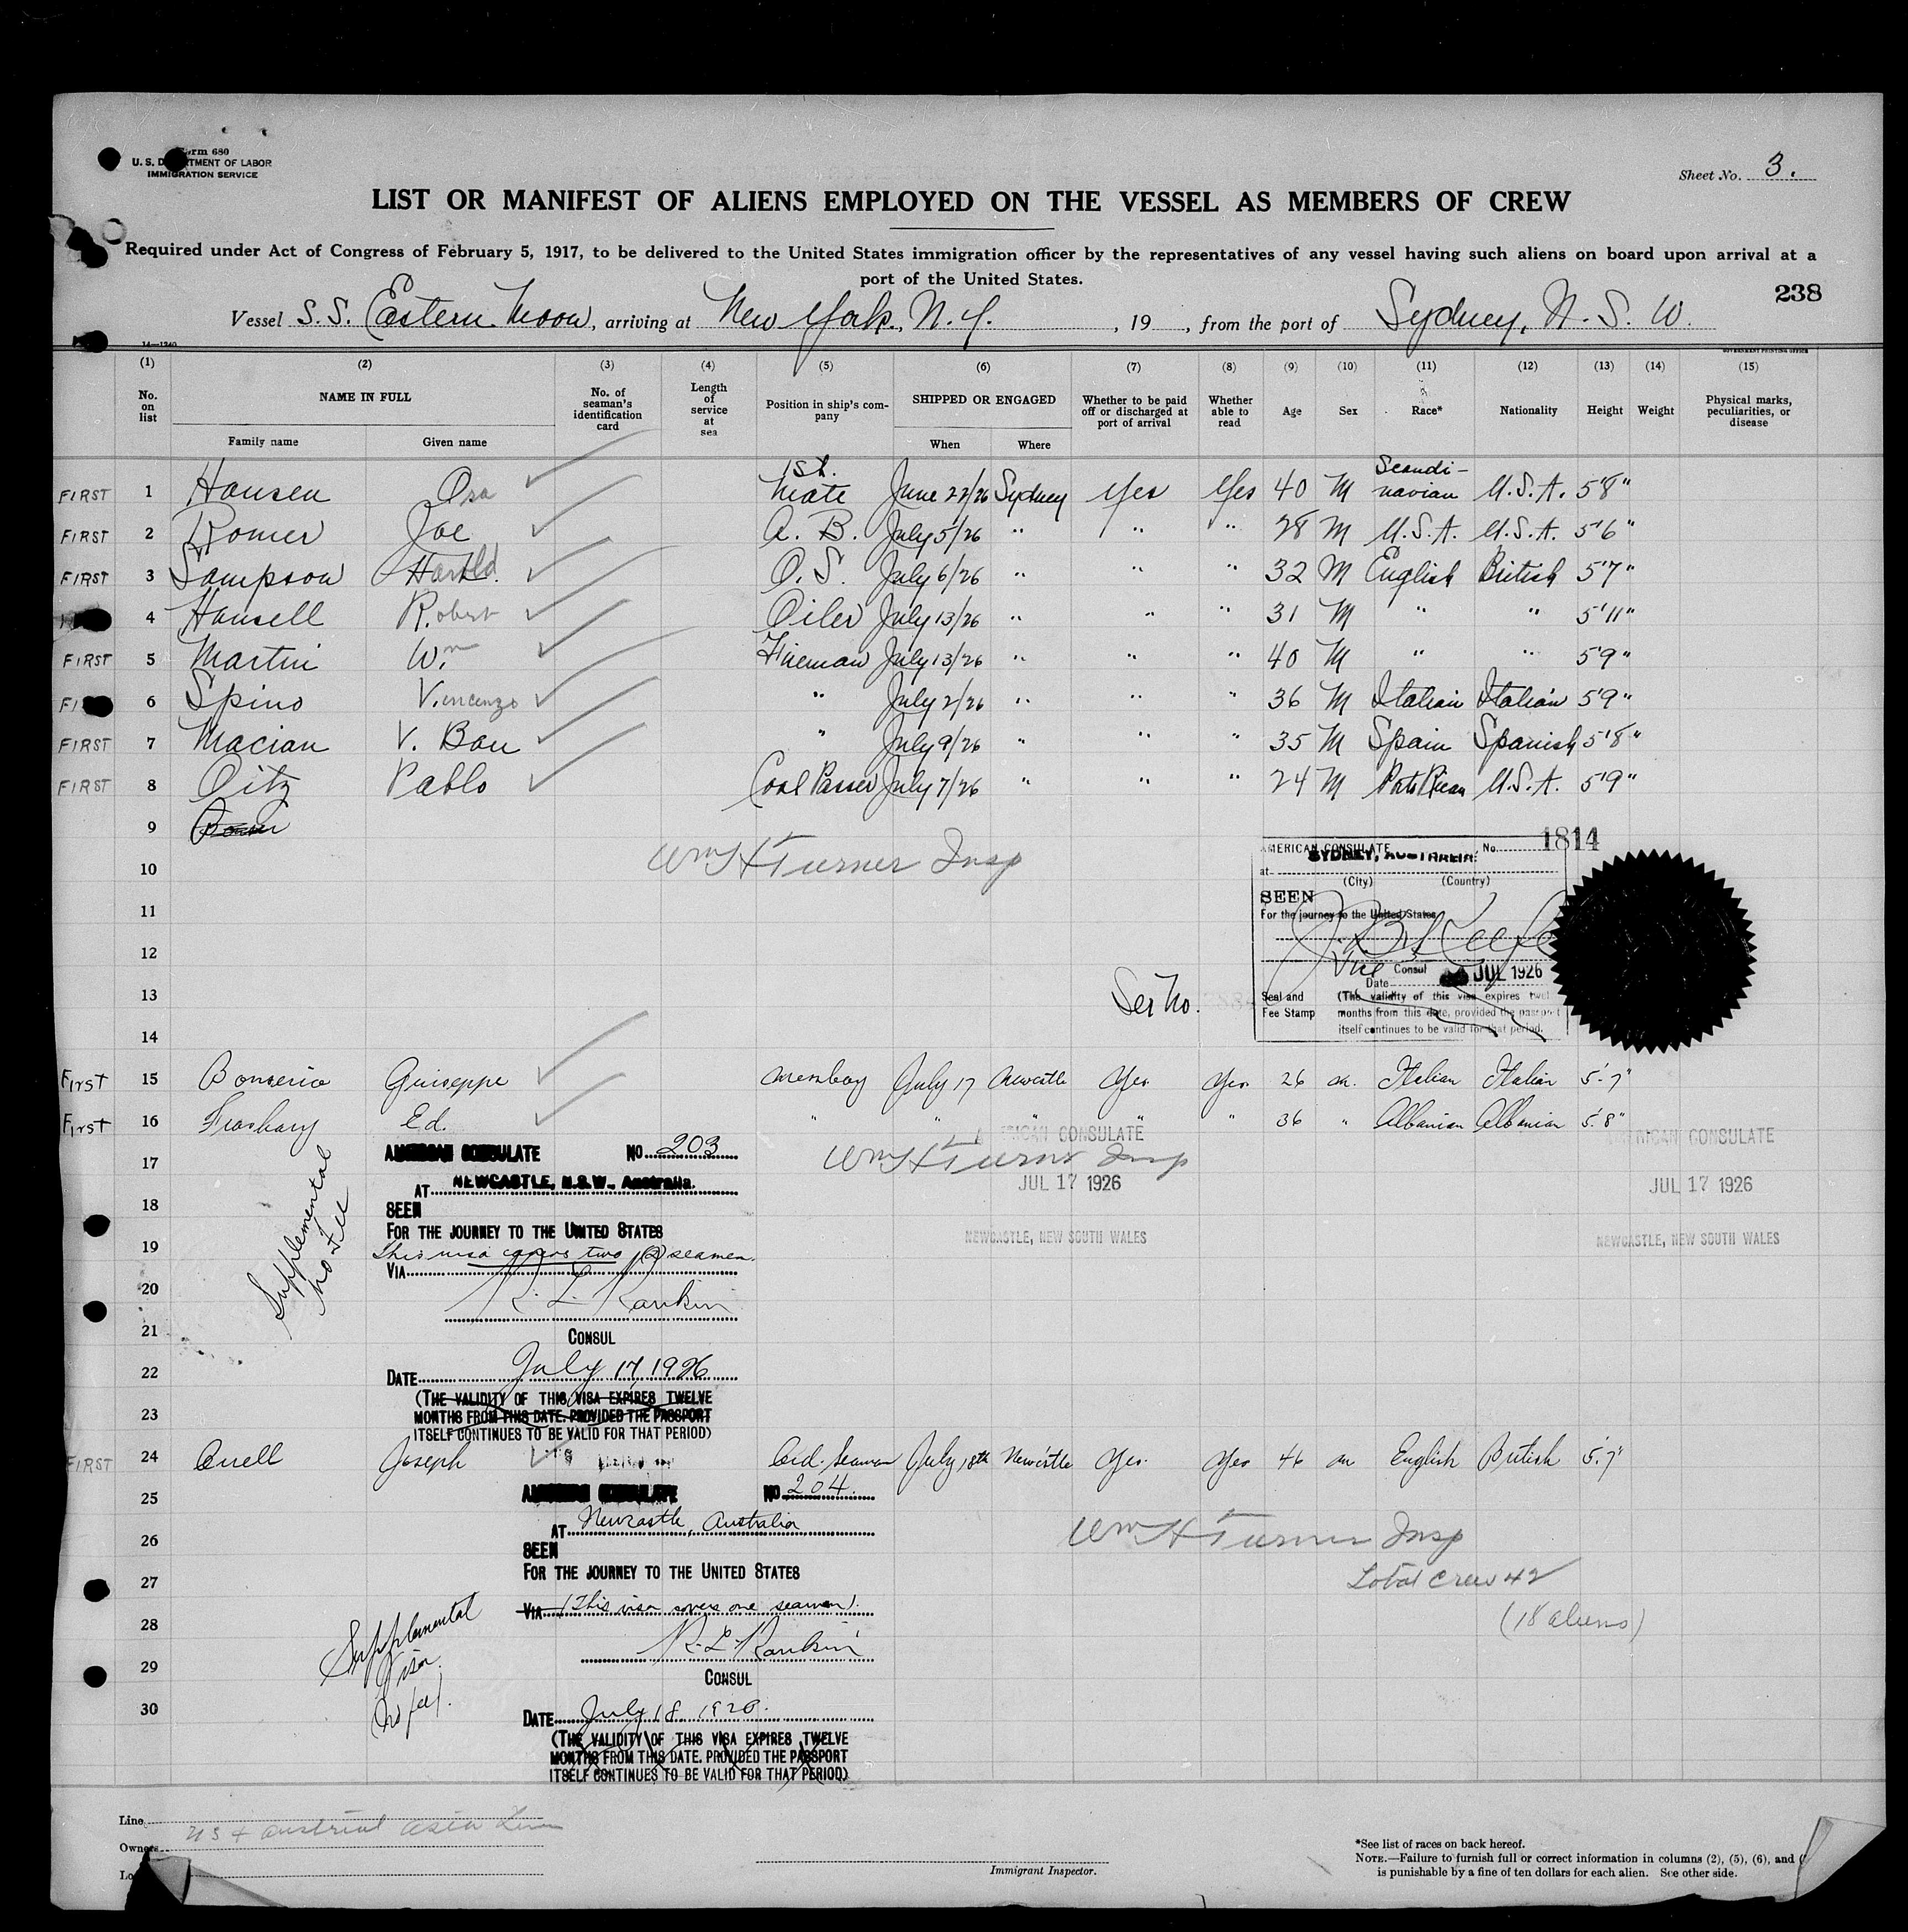 Form 680
U. S. DEPARTMENT OF LABOR
IMMIGRATION SERVICE
Sheet No. 3.
LIST OR MANIFEST OF ALIENS EMPLOYED ON THE VESSEL AS MEMBERS OF CREW
Required under Act of Congress of February 5, 1917, to be delivered to the United States immigration officer by the representatives of any vessel having such aliens on board upon arrival at a
port of the United States.
238
Vessel S.S. Eastern Moon, arriving at New York, N.Y., 19 , from the port of Sydney, N. S. W.
14—1240 GOVERNMENT PRINTING OFFICE
(1) (2) (3) (4) (5) (6) (7) (8) (9) (10) (11) (12) (13) (14) (15)
No. on list NAME IN FULL No. of seaman's identification card Length of service at sea Position in ship's company SHIPPED OR ENGAGED Whether to be paid off or discharged at port of arrival Whether able to read Age Sex Race* Nationality Height Weight Physical marks, peculiarities, or disease
Family name Given name When Where
FIRST 1 Hansen Osa 1st. Mate June 22/26 Sydney Yes Yes 40 M Scandi-navian U.S.A. 5'8"
FIRST 2 Romer Joe A. B. July 5/26 " " " 28 M U.S.A. U.S.A. 5'6"
FIRST 3 Sampson Harold O. S. July 6/26 " " " 32 M English British 5'7"
4 Hansell Robert Oiler July 13/26 " " " 31 M " " 5'11"
FIRST 5 Martin Wm Fireman July 13/26 " " " 40 M " " 5'9"
FIRST 6 Spino Vincenzo " July 2/26 " " " 36 M Italian Italian 5'9"
FIRST 7 Macian V. Bau " July 9/26 " " " 35 M Spain Spanish 5'8"
FIRST 8 Oitz Pablo Coal Passer July 7/26 " " " 24 M Porto Rican U.S.A. 5'9"
9
10 Wm H Turner Insp
11
12
13 Ser No.
14
AMERICAN CONSULATE No. 1814
at SYDNEY, AUSTRALIA.
(City) (Country)
SEEN
For the journey to the United States
Vice Consul
Date JUL 1926
Seal and Fee Stamp (The validity of this visa expires twelve
months from this date, provided the passport
itself continues to be valid for that period.
First 15 Bonserio Guiseppe Messboy July 17 Newcastle Yes Yes 26 m. Italian Italian 5'-7"
First 16 Frashary Ed. " " " " " 36 " Albanian Albanian 5'.8"
17
18
19
20
21
22
23
AMERICAN CONSULATE No 203
AT NEWCASTLE, N.S.W., Australia.
SEEN
FOR THE JOURNEY TO THE UNITED STATES
This visa covers two (2) seamen.
VIA
R. L. Rankin
CONSUL
DATE July 17, 1926
(THE VALIDITY OF THIS VISA EXPIRES TWELVE
MONTHS FROM THIS DATE. PROVIDED THE PASSPORT
ITSELF CONTINUES TO BE VALID FOR THAT PERIOD)
Supplemental
No Fee
AMERICAN CONSULATE
Wm H Turner Insp
JUL 17 1926
NEWCASTLE, NEW SOUTH WALES
AMERICAN CONSULATE
JUL 17 1926
NEWCASTLE, NEW SOUTH WALES
FIRST 24 Quell Joseph Ord. Seaman July 18th Newcastle Yes Yes 46 m English British 5'.7"
25
26
27
28
29
30
AMERICAN CONSULATE NO 204
AT Newcastle, Australia
SEEN
FOR THE JOURNEY TO THE UNITED STATES
VIA (This visa covers one seaman).
R. L. Rankin
CONSUL
DATE July 18 1926.
(THE VALIDITY OF THIS VISA EXPIRES TWELVE
MONTHS FROM THIS DATE. PROVIDED THE PASSPORT
ITSELF CONTINUES TO BE VALID FOR THAT PERIOD)
Supplemental
Visa
(No fee).
Wm H Turner Insp
Total Crew 42
(18 aliens)
Line U S & Austral Asia Line
Owners
Immigrant Inspector.
*See list of races on back hereof.
NOTE.—Failure to furnish full or correct information in columns (2), (5), (6), and
is punishable by a fine of ten dollars for each alien. See other side.